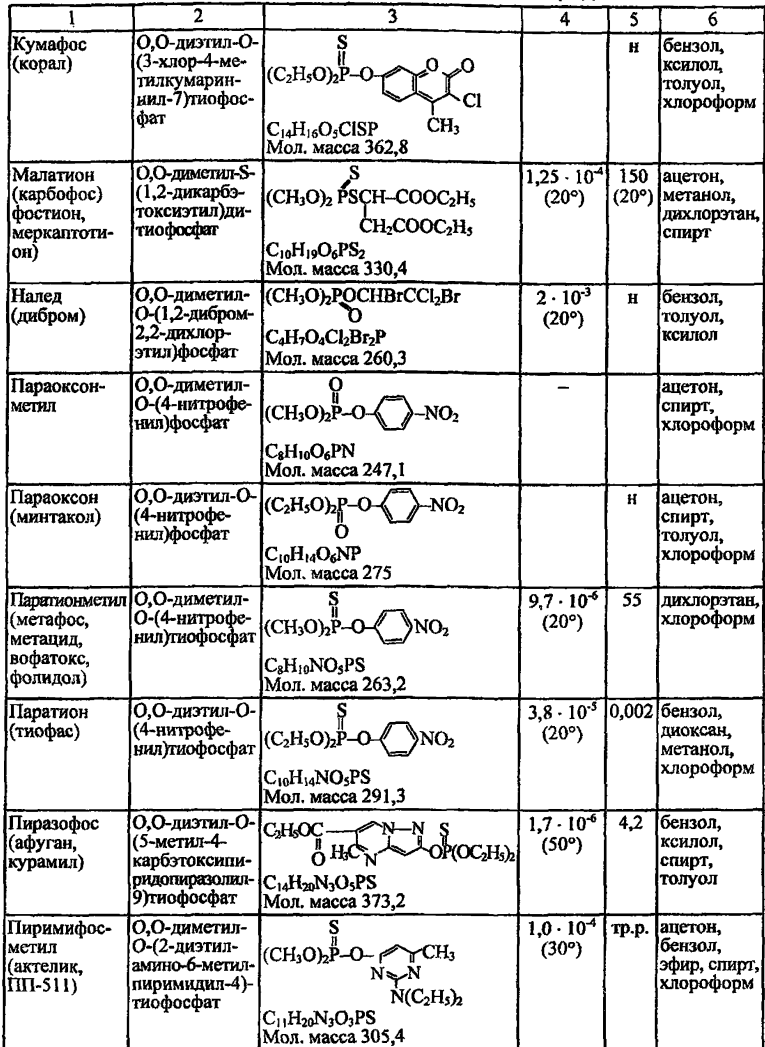 1 2 3 4 5 6
Кумафос
(корал)
О,О-диэтил-О-
(3-хлор-4-ме-
тилкумарин-
нил-7)тиофос-
фат
S
(C₂H₅O)₂P–O O O
Cl
CH₃
C₁₄H₁₆O₅ClSP
Мол. масса 362,8
н
бензол,
ксилол,
толуол,
хлороформ
Малатион
(карбофос)
фостион,
меркаптоти-
он)
О,О-диметил-S-
(1,2-дикарбэ-
токсиэтил)ди-
тиофосфат
S
(CH₃O)₂ PSCH–COOC₂H₅
CH₂COOC₂H₅
C₁₀H₁₉O₆PS₂
Мол. масса 330,4
1,25 · 10⁻⁴
(20°)
150
(20°)
ацетон,
метанол,
дихлорэтан,
спирт
Налед
(дибром)
О,О-диметил-
О-(1,2-дибром-
2,2-дихлор-
этил)фосфат
(CH₃O)₂POCHBrCCl₂Br
O
C₄H₇O₄Cl₂Br₂P
Мол. масса 260,3
2 · 10⁻³
(20°)
н
бензол,
толуол,
ксилол
Параоксон-
метил
О,О-диметил-
О-(4-нитрофе-
нил)фосфат
O
(CH₃O)₂P–O– –NO₂
C₈H₁₀O₆PN
Мол. масса 247,1
–
ацетон,
спирт,
хлороформ
Параоксон
(минтакол)
О,О-диэтил-О-
(4-нитрофе-
нил)фосфат
(C₂H₅O)₂P–O –NO₂
O
C₁₀H₁₄O₆NP
Мол. масса 275
н
ацетон,
спирт,
толуол,
хлороформ
Паратионметил
(метафос,
метацид,
вофатокс,
фолидол)
О,О-диметил-
О-(4-нитрофе-
нил)тиофосфат
S
(CH₃O)₂P–O NO₂
C₈H₁₀NO₅PS
Мол. масса 263,2
9,7 · 10⁻⁶
(20°)
55
дихлорэтан,
хлороформ
Паратион
(тиофас)
О,О-диэтил-О-
(4-нитрофе-
нил)тиофосфат
S
(C₂H₅O)₂P–O NO₂
C₁₀H₁₄NO₅PS
Мол. масса 291,3
3,8 · 10⁻⁵
(20°)
0,002
бензол,
диоксан,
метанол,
хлороформ
Пиразофос
(афуган,
курамил)
О,О-диэтил-О-
(5-метил-4-
карбэтоксипи-
ридопиразолил-
9)тиофосфат
C₂H₅OC N N S
O H₃C N OP(OC₂H₅)₂
C₁₄H₂₀N₃O₅PS
Мол. масса 373,2
1,7 · 10⁻⁶
(50°)
4,2
бензол,
ксилол,
спирт,
толуол
Пиримифос-
метил
(актелик,
ПП-511)
О,О-диметил-
О-(2-диэтил-
амино-6-метил-
пиримидил-4)-
тиофосфат
S
(CH₃O)₂P–O– CH₃
N N
N(C₂H₅)₂
C₁₁H₂₀N₃O₃PS
Мол. масса 305,4
1,0 · 10⁻⁴
(30°)
тр.р.
ацетон,
бензол,
эфир, спирт,
хлороформ